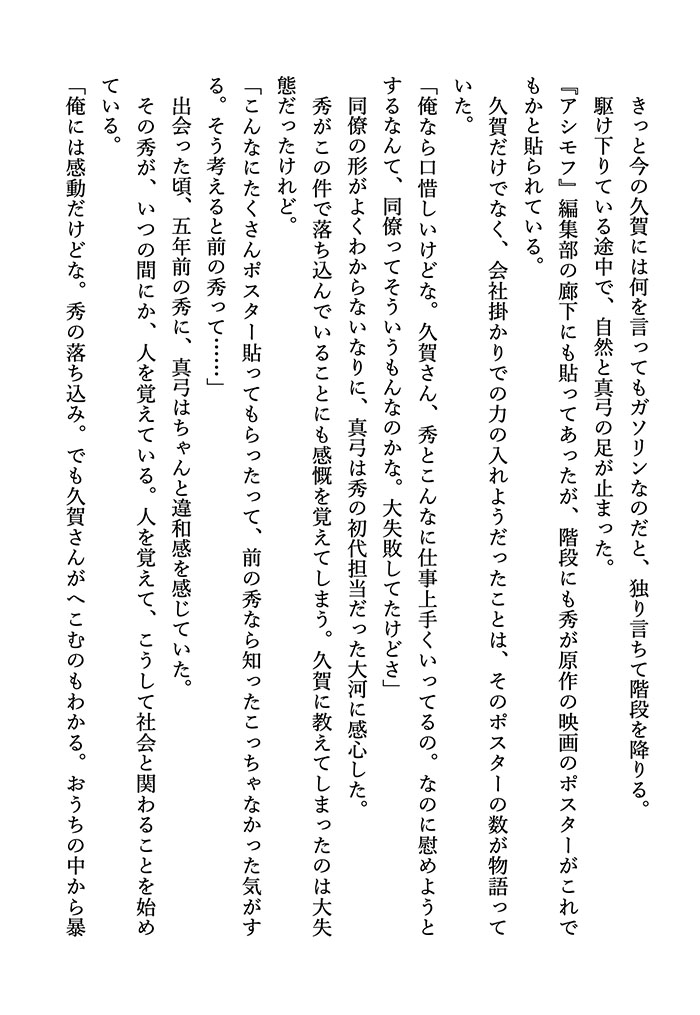 きっと今の久賀には何を言ってもガソリンなのだと、独り言ちて階段を降りる。
駆け下りている途中で、自然と真弓の足が止まった。
『アシモフ』編集部の廊下にも貼ってあったが、階段にも秀が原作の映画のポスターがこれで
もかと貼られている。
久賀だけでなく、会社掛かりでの力の入れようだったことは、そのポスターの数が物語って
いた。
「俺なら口惜しいけどな。久賀さん、秀とこんなに仕事上手くいってるの。なのに慰めようと
するなんて、同僚ってそういうもんなのかな。大失敗してたけどさ」
同僚の形がよくわからないなりに、真弓は秀の初代担当だった大河に感心した。
秀がこの件で落ち込んでいることにも感慨を覚えてしまう。久賀に教えてしまったのは大失
態だったけれど。
「こんなにたくさんポスター貼ってもらったって、前の秀なら知ったこっちゃなかった気がす
る。そう考えると前の秀って……」
出会った頃、五年前の秀に、真弓はちゃんと違和感を感じていた。
その秀が、いつの間にか、人を覚えている。人を覚えて、こうして社会と関わることを始め
ている。
「俺には感動だけどな。秀の落ち込み。でも久賀さんがへこむのもわかる。おうちの中から暴